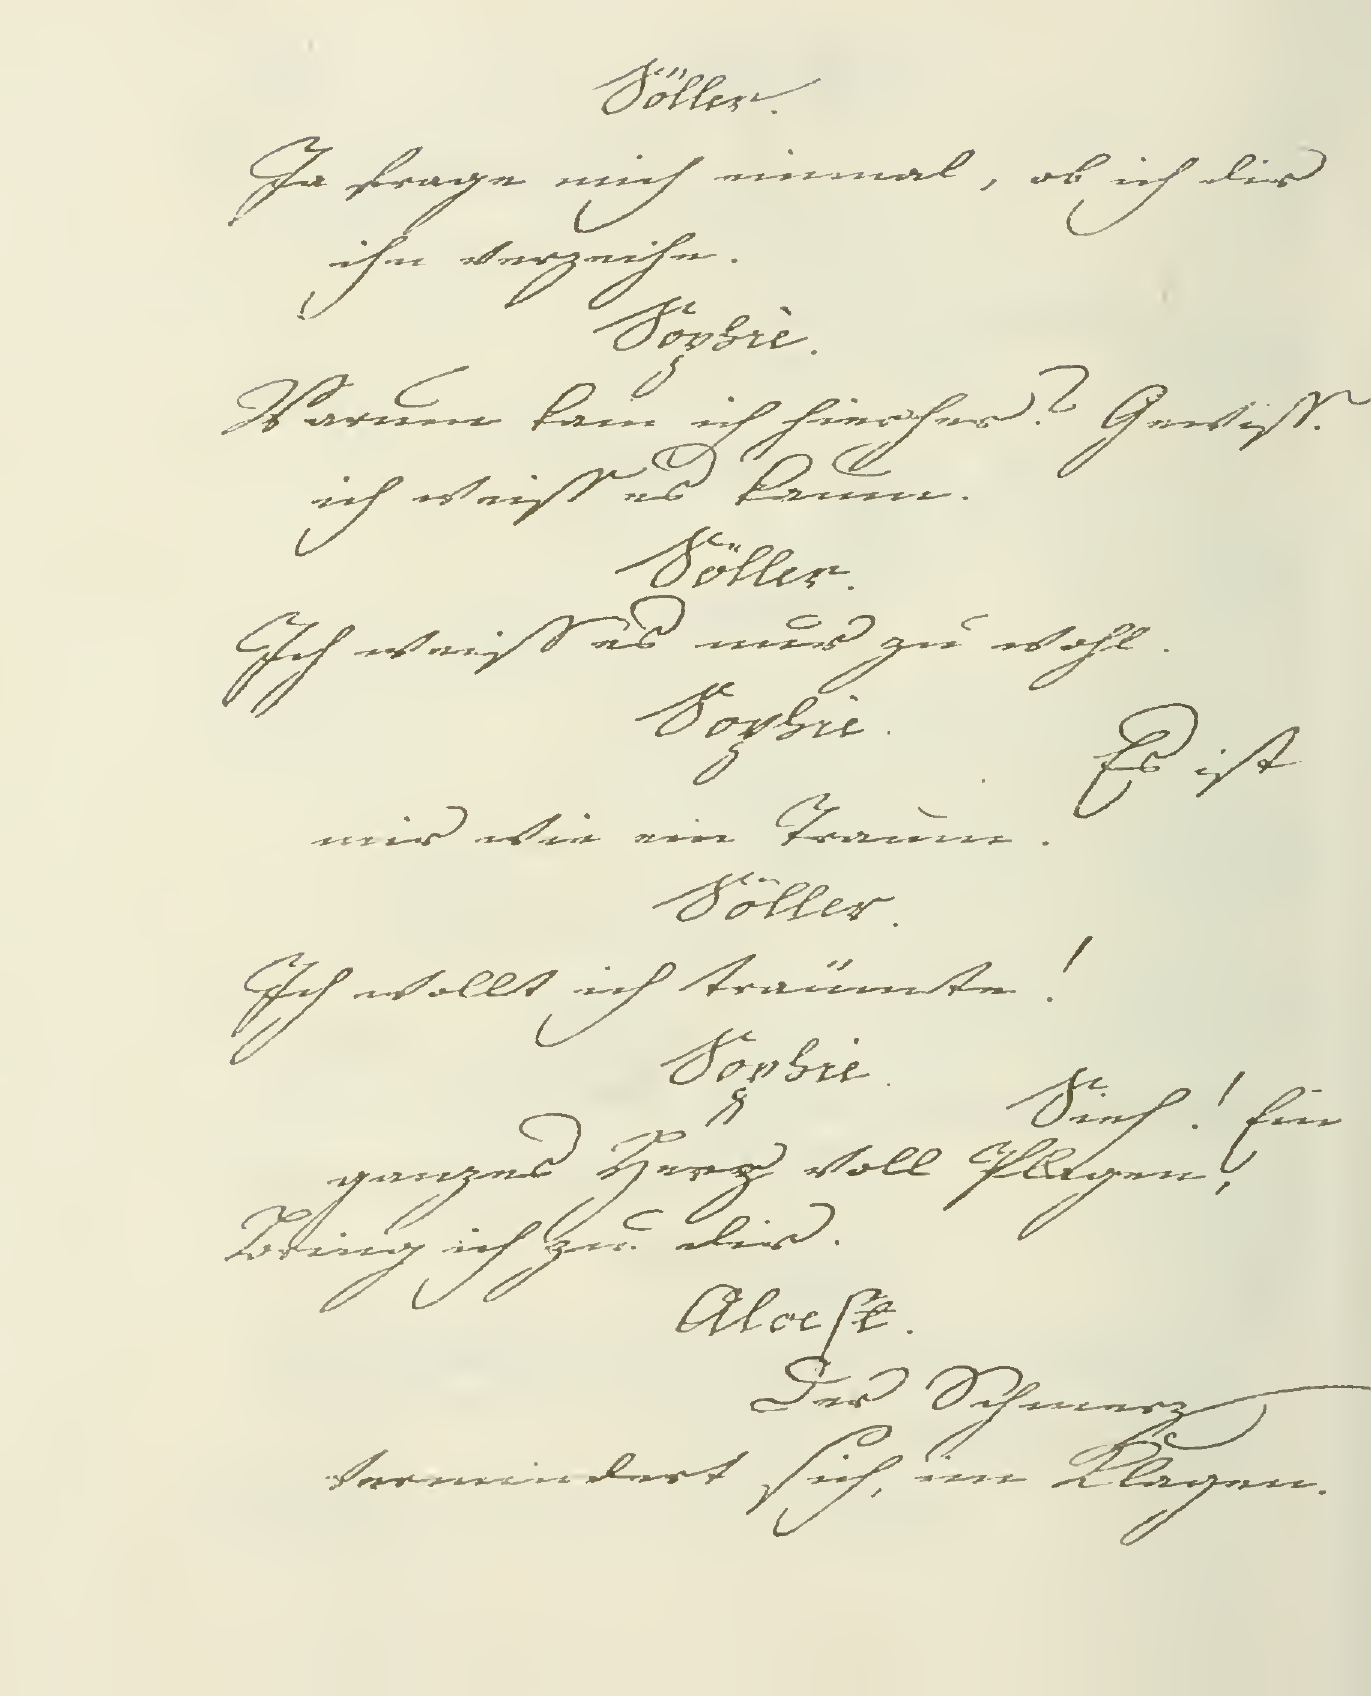 Söller.
Ja frage mich einmal, ob ich dir
ihn verzeihe.
Sophie.
Warum kam ich hierher? Gewiss.
ich weiss es kaum.
Söller.
Ich weiss es nur zu wohl.
Sophie.
Es ist
mir wie ein Traum.
Söller.
Ich wollt ich träumte!
Sophie.
Sieh! Ein
ganzes Herz voll Plagen,
Bring ich zu dir.
Alcest.
Der Schmerz
vermindert sich, im Klagen.